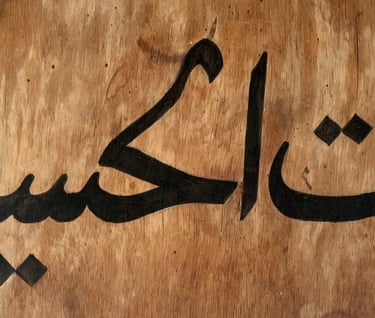 ت الحسي